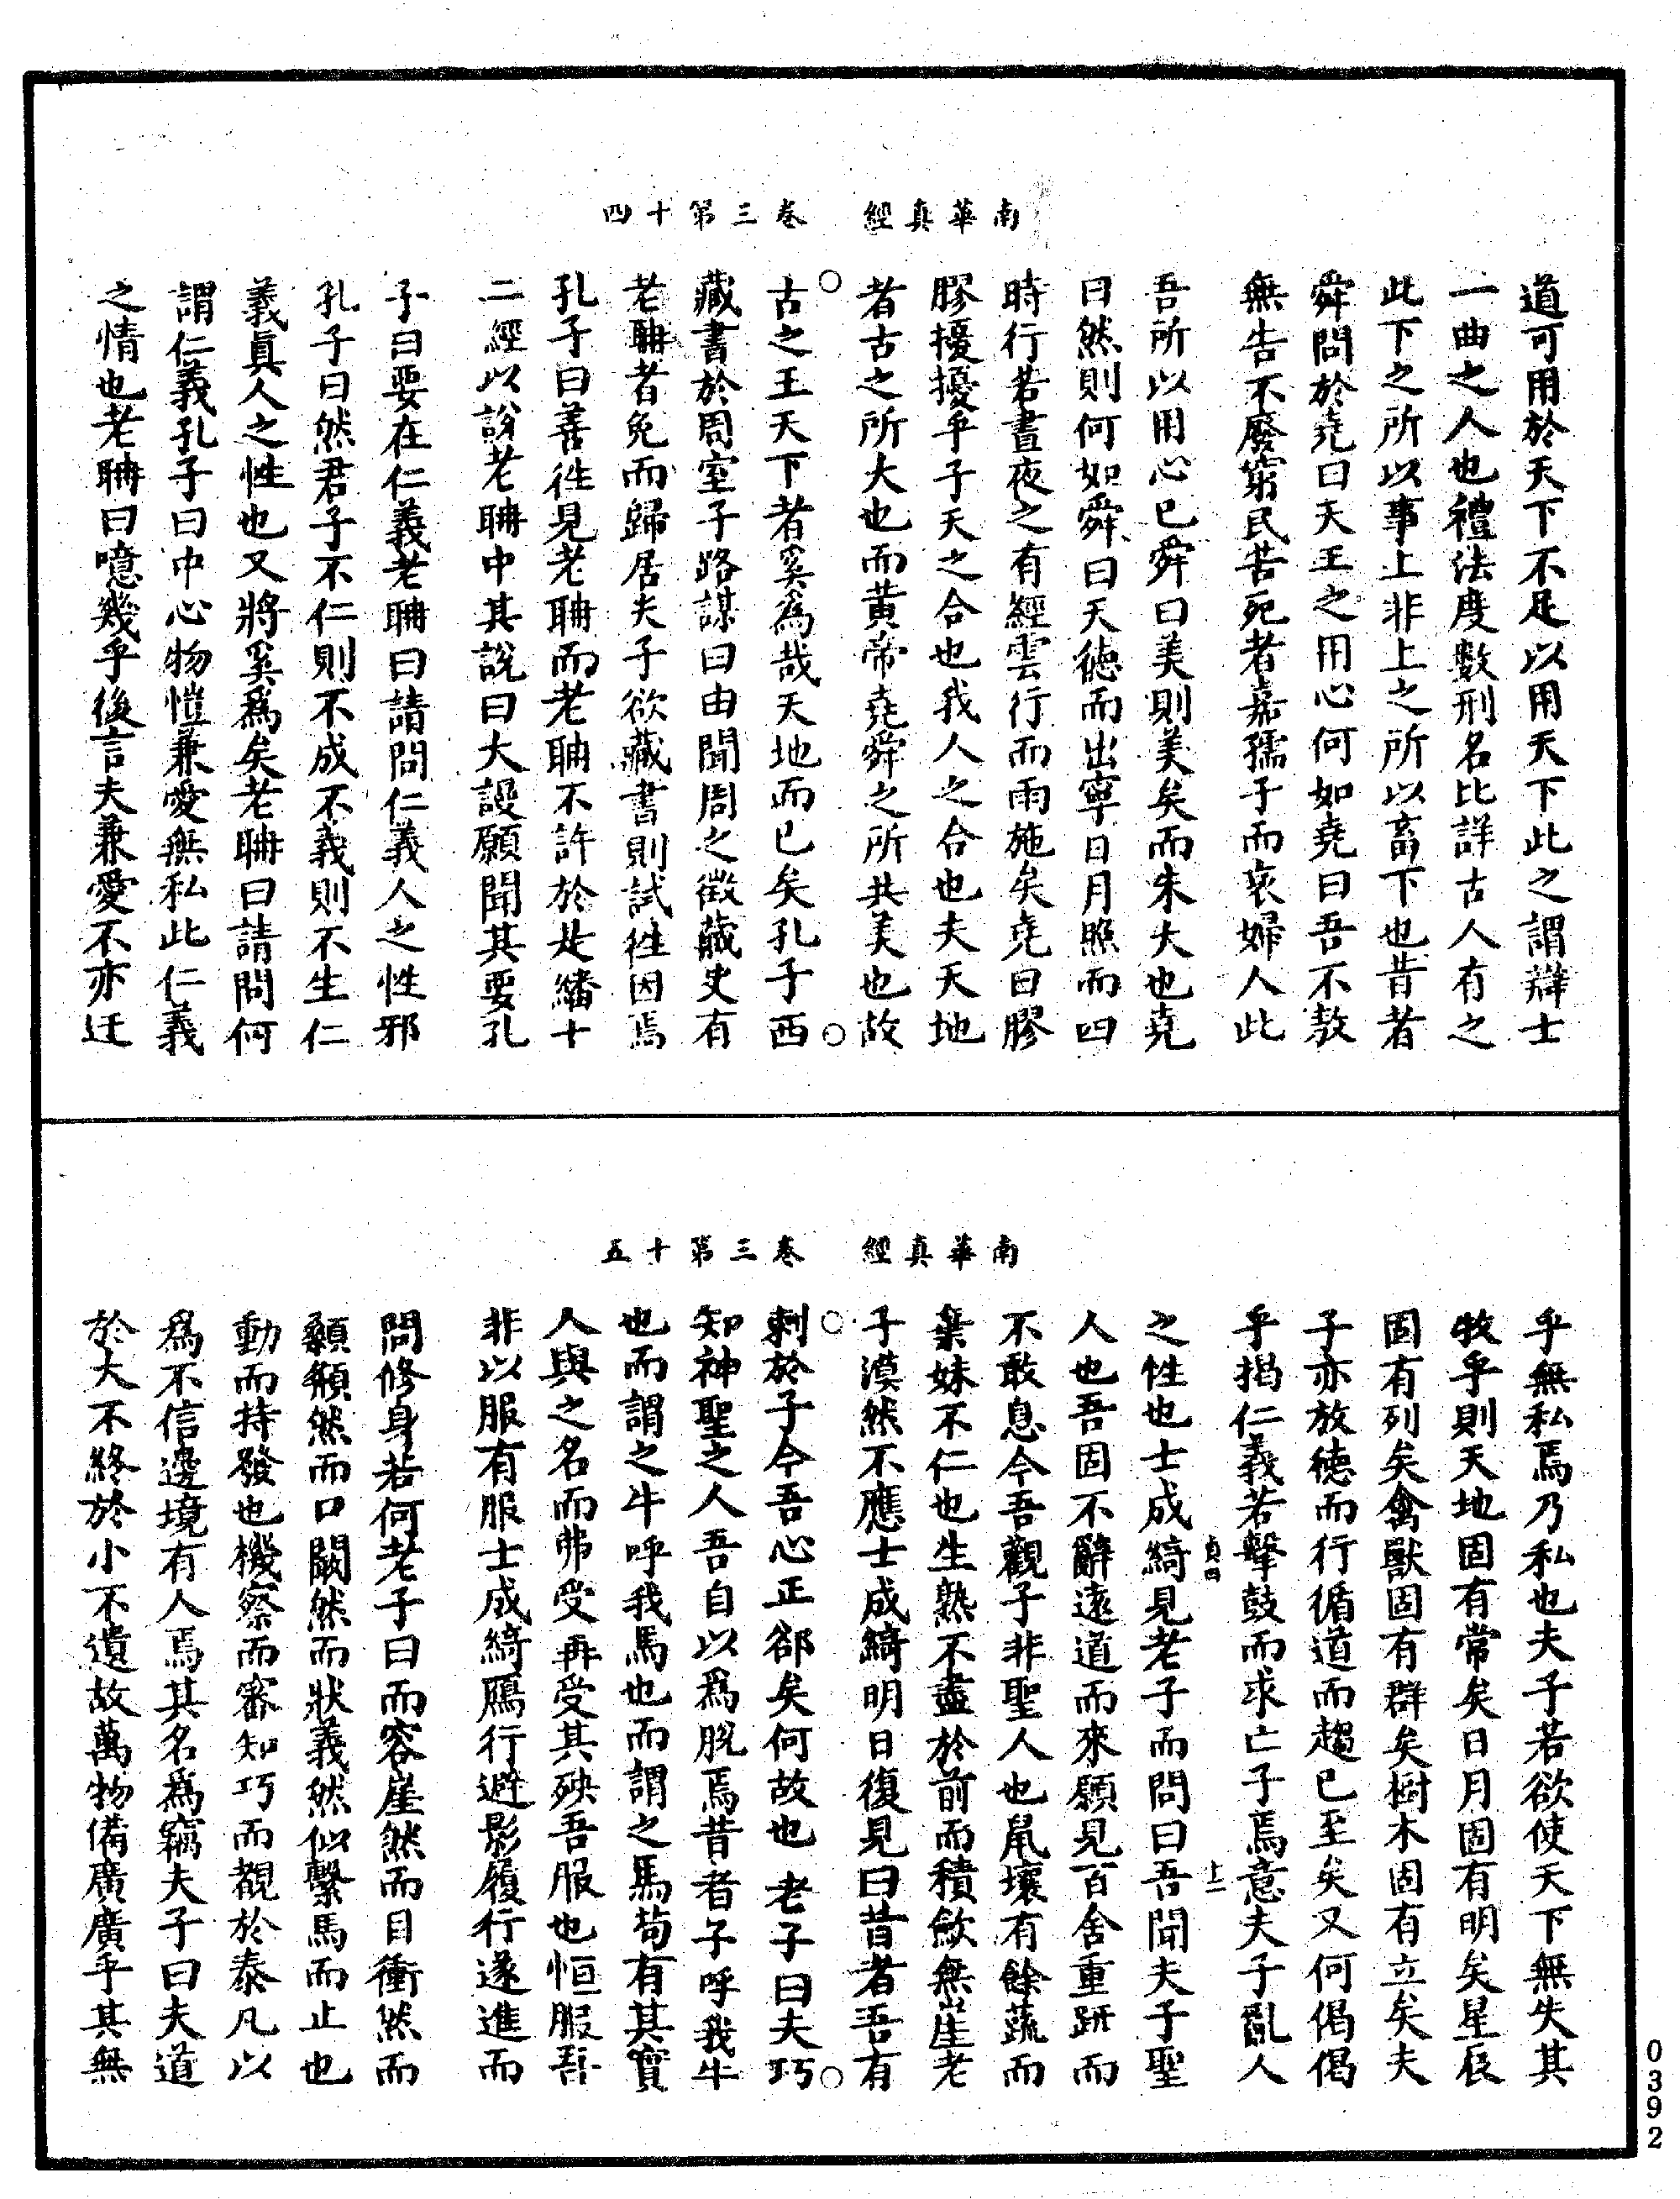 南華真經　卷三第十四
道可用於天下不足以用天下此之謂辯士
一曲之人也禮法度數刑名比詳古人有之
此下之所以事上非上之所以畜下也昔者
舜問於堯曰天王之用心何如堯曰吾不敖
無告不廢窮民苦死者嘉孺子而哀婦人此
吾所以用心已舜曰美則美矣而未大也堯
曰然則何如舜曰天德而出寧日月照而四
時行若晝夜之有經雲行而雨施矣堯曰膠
膠擾擾乎子天之合也我人之合也夫天地
者古之所大也而黃帝堯舜之所共美也故
古之王天下者奚為哉天地而已矣孔子西
藏書於周室子路謀曰由聞周之徵藏史有
老聃者免而歸居夫子欲藏書則試往因焉
孔子曰善往見老聃而老聃不許於是繙十
二經以說老聃中其說曰大謾願聞其要孔
子曰要在仁義老聃曰請問仁義人之性邪
孔子曰然君子不仁則不成不義則不生仁
義真人之性也又將奚為矣老聃曰請問何
謂仁義孔子曰中心物愷兼愛無私此仁義
之情也老聃曰噫幾乎後言夫兼愛不亦迂
南華真經　卷三第十五
乎無私焉乃私也夫子若欲使天下無失其
牧乎則天地固有常矣日月固有明矣星辰
固有列矣禽獸固有群矣樹木固有立矣夫
子亦放德而行循道而趨已至矣又何偈偈
乎揭仁義若擊鼓而求亡子焉意夫子亂人
貞四　上一
之性也士成綺見老子而問曰吾聞夫子聖
人也吾固不辭遠道而來願見百舍重趼而
不敢息今吾觀子非聖人也鼠壤有餘蔬而
棄妹不仁也生熟不盡於前而積斂無崖老
子漠然不應士成綺明日復見曰昔者吾有
刺於子今吾心正郤矣何故也老子曰夫巧
知神聖之人吾自以為脫焉昔者子呼我牛
也而謂之牛呼我馬也而謂之馬苟有其實
人與之名而弗受再受其殃吾服也恒服吾
非以服有服士成綺鴈行避影履行遂進而
問修身若何老子曰而容崖然而目衝然而
顙頯然而口闞然而狀義然似繫馬而止也
動而持發也機察而審知巧而覩於泰凡以
為不信邊境有人焉其名為竊夫子曰夫道
於大不終於小不遺故萬物備廣廣乎其無
0392